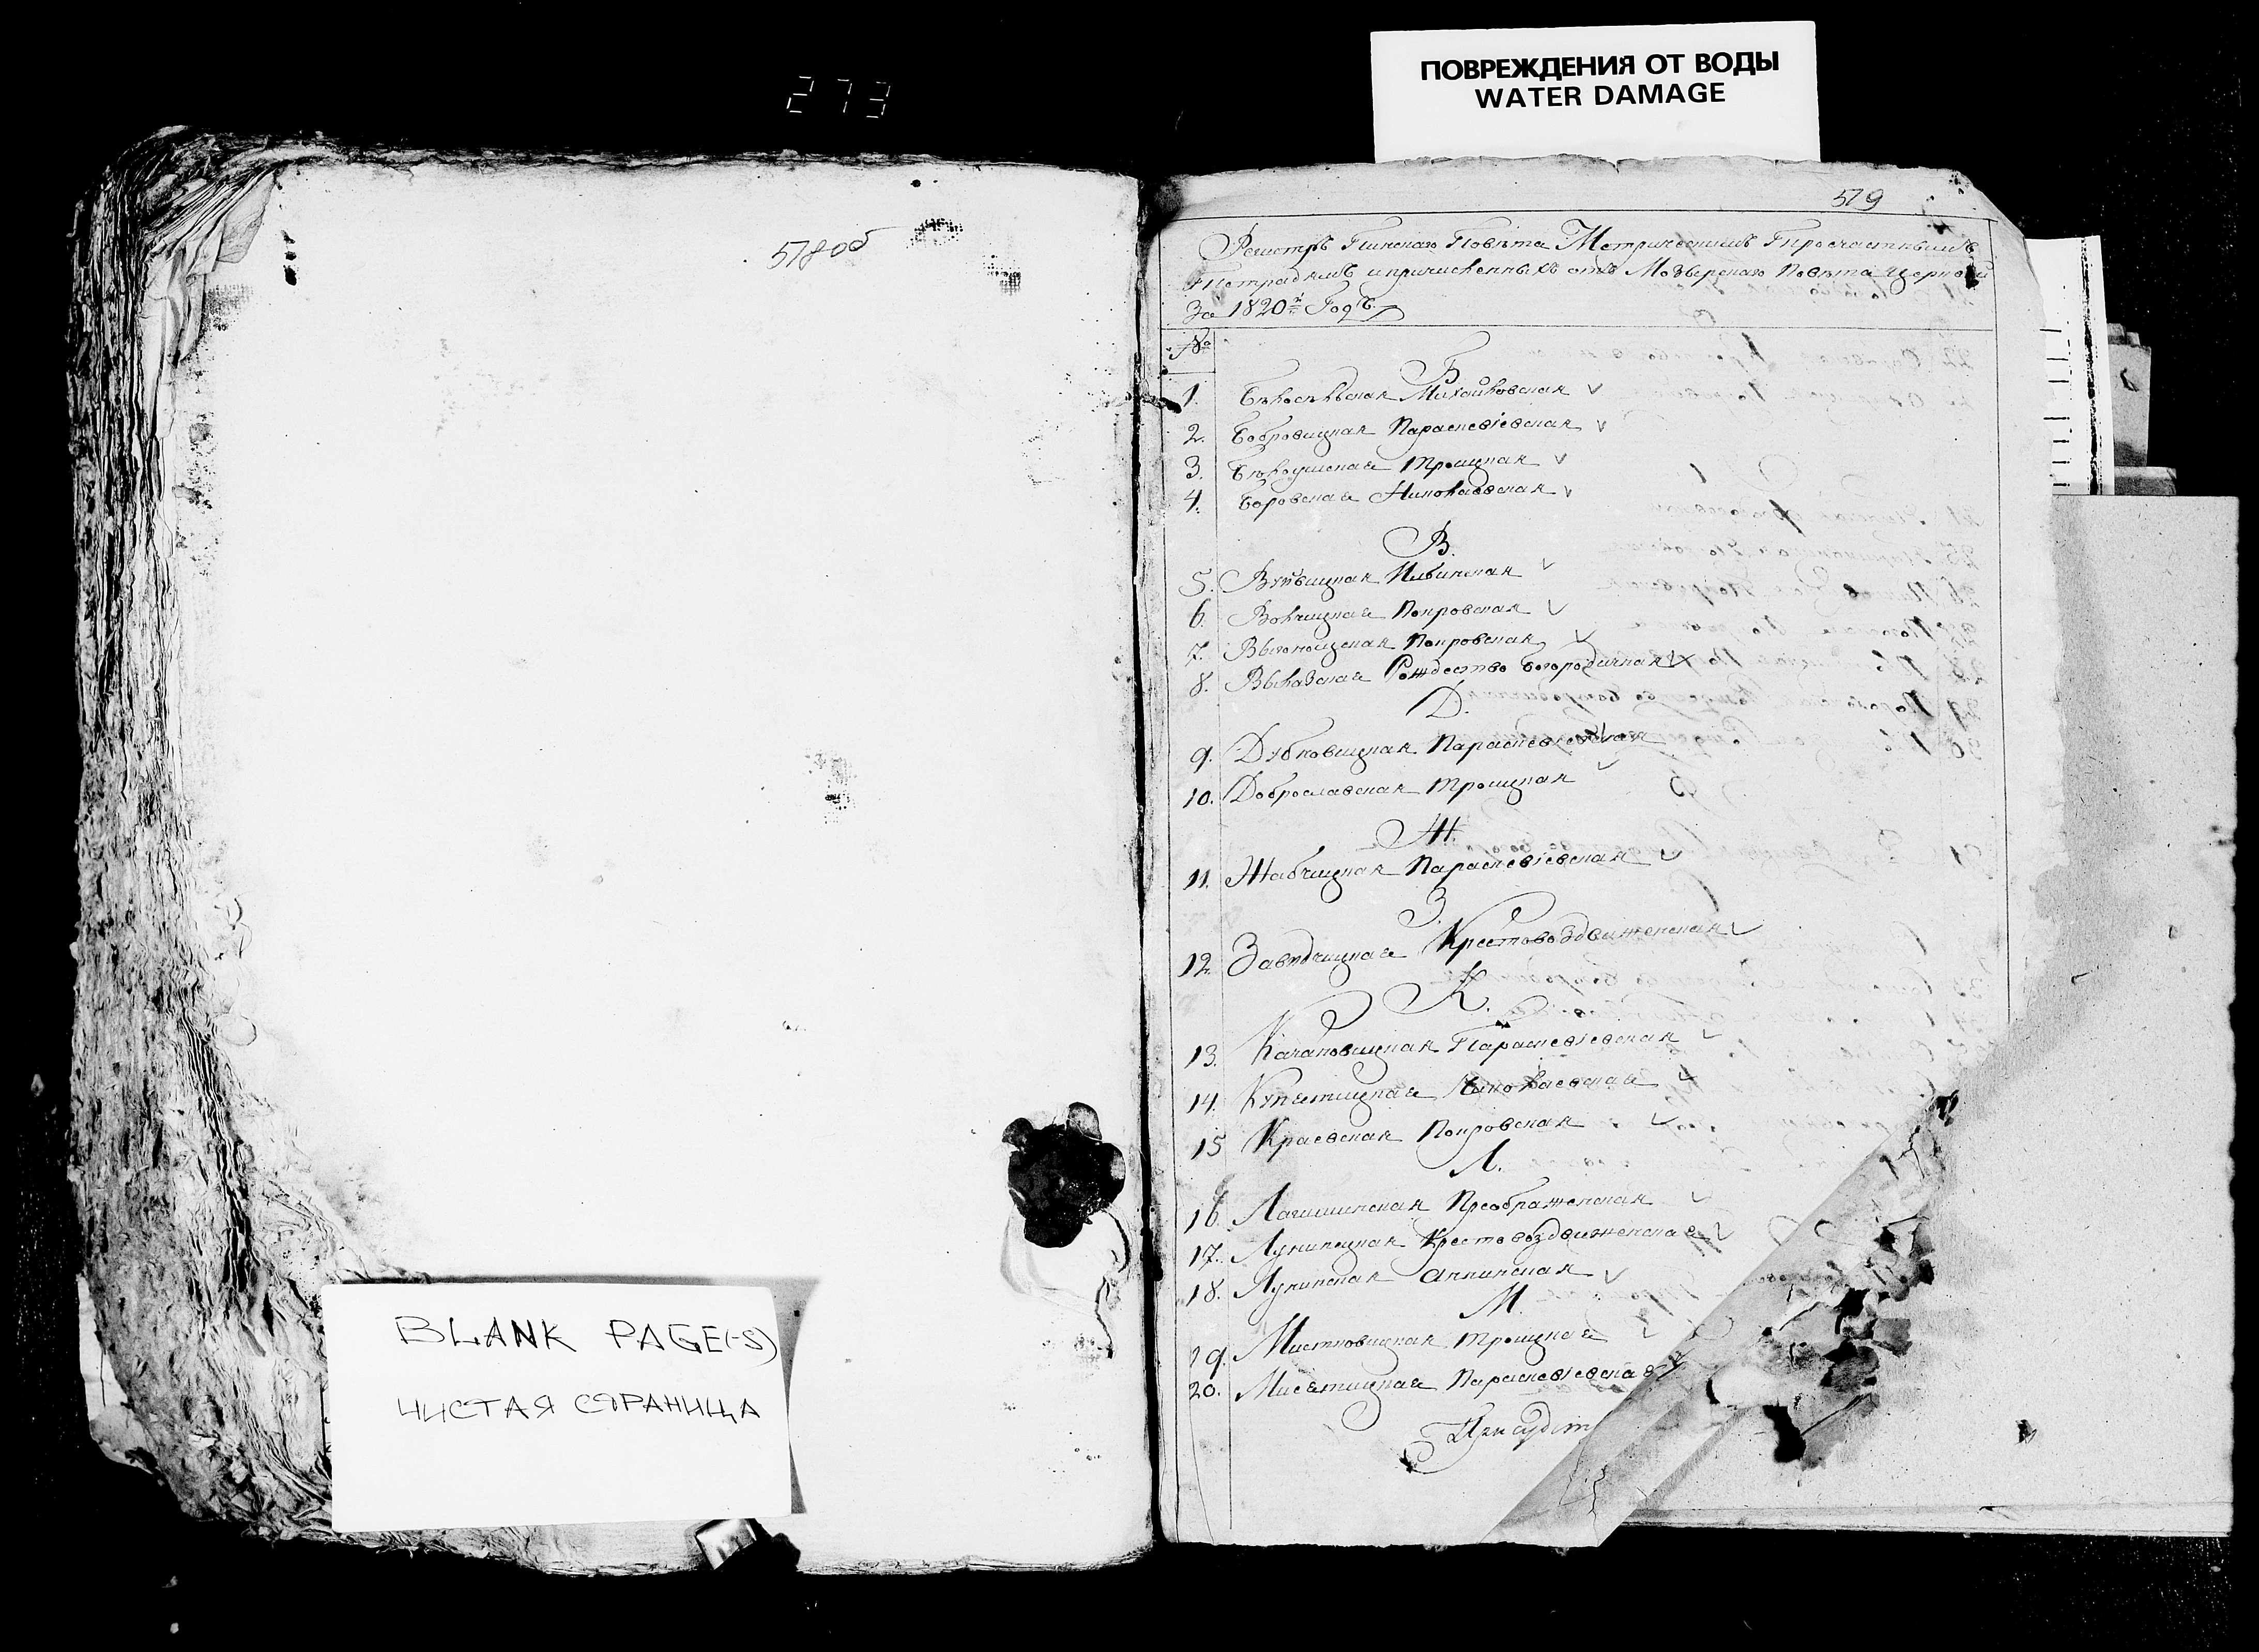 273
ПОВРЕЖДЕНИЯ ОТ ВОДЫ
WATER DAMAGE
578об
BLANK PAGE(-S)
ЧИСТАЯ СТРАНИЦА
579
Регистръ Пинскаго Повѣта Метрическимъ Проѣчастнымъ
Тетрадямъ и причисленныхъ отъ Мозырскаго Повѣта Церквей
За 1820й Годъ
№
Б
1. Бѣлосѣльская Михайловская
2. Бобровицкая Параскевіевская
3. Троицкая
4. Боровская Николаевская
В.
5. Вуйвицкая
6. Волчицкая Покровская
7. Выгонощская Покровская
8. Вылазская Рождество Богородичная
Д.
9. Дубновицкая Параскевіевская
10. Доброславская Троицкая
Ж.
11. Жабчицкая Параскевіевская
З.
12. Завидчицкая Крестовоздвиженская
К.
13. Качановицкая Параскевіевская
14. Купятицкая Николаевская
15 Краевская Покровская
Л.
16. Логишинская Преображенская
17. Лунинецкая Крестовоздвиженская
18. Лунинская Аннинская
М.
19. Мистковицкая Троицкая
20. Мисятицкая Параскевіевская